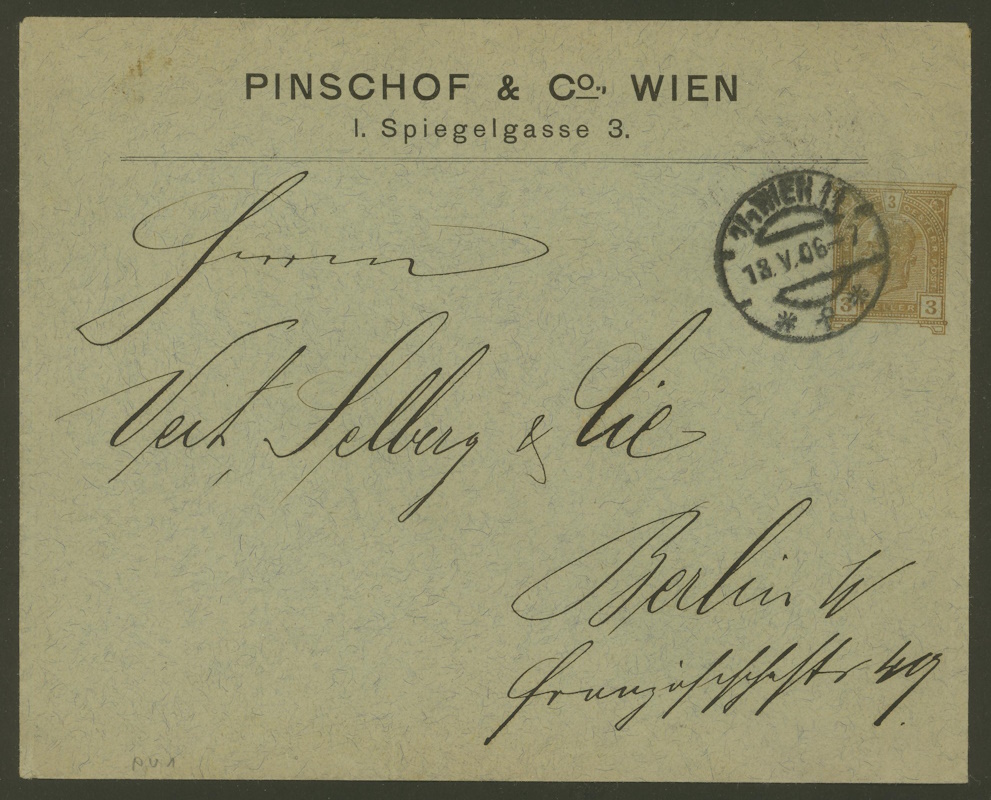 PINSCHOF & Co., WIEN
I. Spiegelgasse 3.
WIEN
18.V.06
3
3 3
Herrn
Veit, Selberg & Cie
Berlin W
Französischestr 49